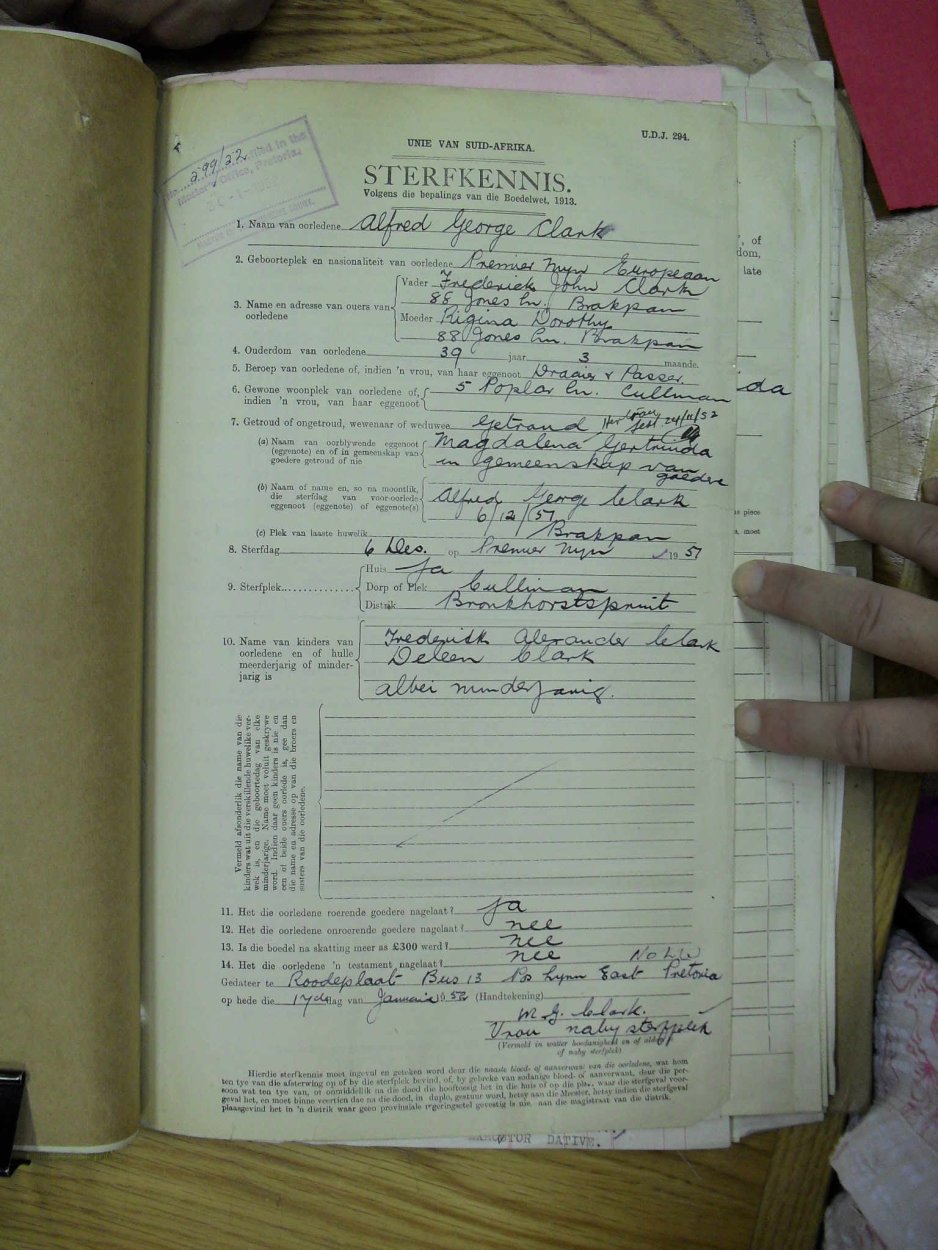 U.D.J. 294.
UNIE VAN SUID-AFRIKA.
STERFKENNIS.
Volgens die bepalings van die Boedelwet, 1913.
No. 599/52 Filed in the
Master's Office, Pretoria.
1. Naam van oorledene Alfred George Clark
2. Geboorteplek en nasionaliteit van oorledene Premier Myn Europeaan
3. Name en adresse van ouers van oorledene
Vader Frederick John Clark
88 Jones Ln. Brakpan
Moeder Rigina Dorothy
88 Jones Ln. Brakpan
4. Ouderdom van oorledene 39 jaar 3 maande.
5. Beroep van oorledene of, indien 'n vrou, van haar eggenoot Draaier & Passer
6. Gewone woonplek van oorledene of,
indien 'n vrou, van haar eggenoot
5 Poplar Ln. Cullinan
7. Getroud of ongetroud, wewenaar of weduwee Getroud
(a) Naam van oorblywende eggenoot
(eggenote) en of in gemeenskap van
goedere getroud of nie
Magdalena Gertruida
in gemeenskap van
goedere
(b) Naam of name en, so na moontlik,
die sterfdag van voor-oorlede
eggenoot (eggenote) of eggenote(s)
Alfred George Clark
6/12/51
(c) Plek van laaste huwelik Brakpan
8. Sterfdag 6 Des. op Premier Myn 1951
9. Sterfplek
Huis Ja
Dorp of Plek Cullinan
Distrik Bronkhorstspruit
10. Name van kinders van
oorledene en of hulle
meerderjarig of minder-
jarig is
Frederick Alexander Clark
Deleen Clark
albei minderjarig.
Vermeld afsonderlik die name van die
kinders wat uit die verskillende huwelike ver-
wek is, en die geboortedag van elke
minderjarige. Name moet voluit geskrywe
word. Indien daar geen kinders is nie en
een of beide ouers oorlede is, gee dan
die name en adresse op van die broers en
susters van die oorledene.
11. Het die oorledene roerende goedere nagelaat? Ja
12. Het die oorledene onroerende goedere nagelaat? nee
13. Is die boedel na skatting meer as £300 werd? nee
14. Het die oorledene 'n testament nagelaat? nee
Gedateer te Roodeplaat Bus 13 Po Lynn East Pretoria
op hede die 17de dag van Januarie 1952 (Handtekening)
M. G. Clark.
Vrou naby sterfplek
(Vermeld in watter hoedanigheid en of aldaar
of naby sterfplek)
Hierdie sterfkennis moet ingevul en geteken word deur die naaste bloed- of aanverwant van die oorledene, wat hom
ten tye van die afsterwing op of by die sterfplek bevind, of, by gebreke van sodanige bloed- of aanverwant, deur die per-
soon wat ten tye van, of onmiddellik na die dood die hooftoesig het in die huis of op die plek, waar die sterfgeval voor-
geval het, en moet binne veertien dae na die dood, in duplo, gestuur word, hetsy aan die Meester, hetsy indien die sterfgeval
plaasgevind het in 'n distrik waar geen provinsiale regeringsetel gevestig is nie, aan die magistraat van die distrik.
DATIVE.
, of
dom,
late
da
is piece
, moet